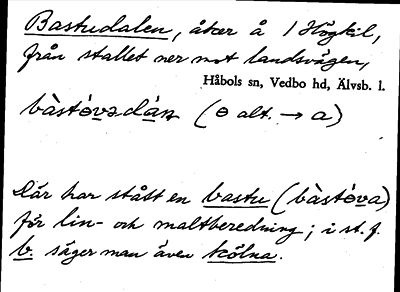 Bastudalen, åker å 1 Högkil,
från stallet ner mot landsvägen,
Håbols sn, Vedbo hd, Älvsb. l.
(ɵ alt. → a)
Där har stått en bastu (bàstóva)
för lin- och maltberedning; i st. f.
b. säger man även kölna.